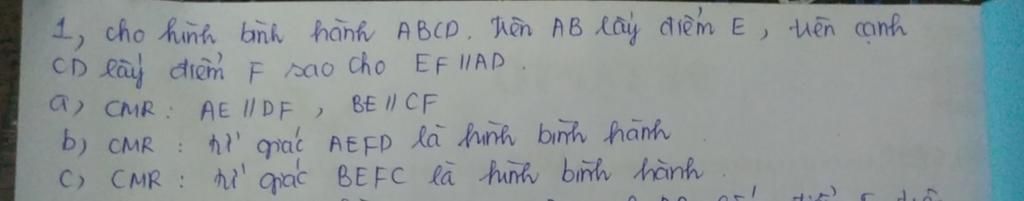 1, cho hình bình hành ABCD. trên AB lấy điểm E, trên cạnh
CD lấy điểm F sao cho EF // AD.
a) CMR: AE // DF, BE // CF
b) CMR: tứ giác AEFD là hình bình hành
c) CMR: tứ giác BEFC là hình bình hành.